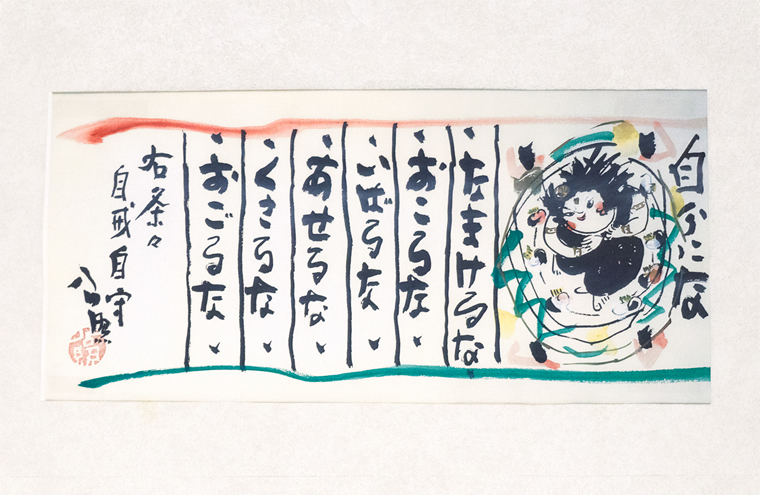 自分にな
なまけるな
おこるな
いばるな
あせるな
くさるな
おごるな
右条々
自戒自守
公照